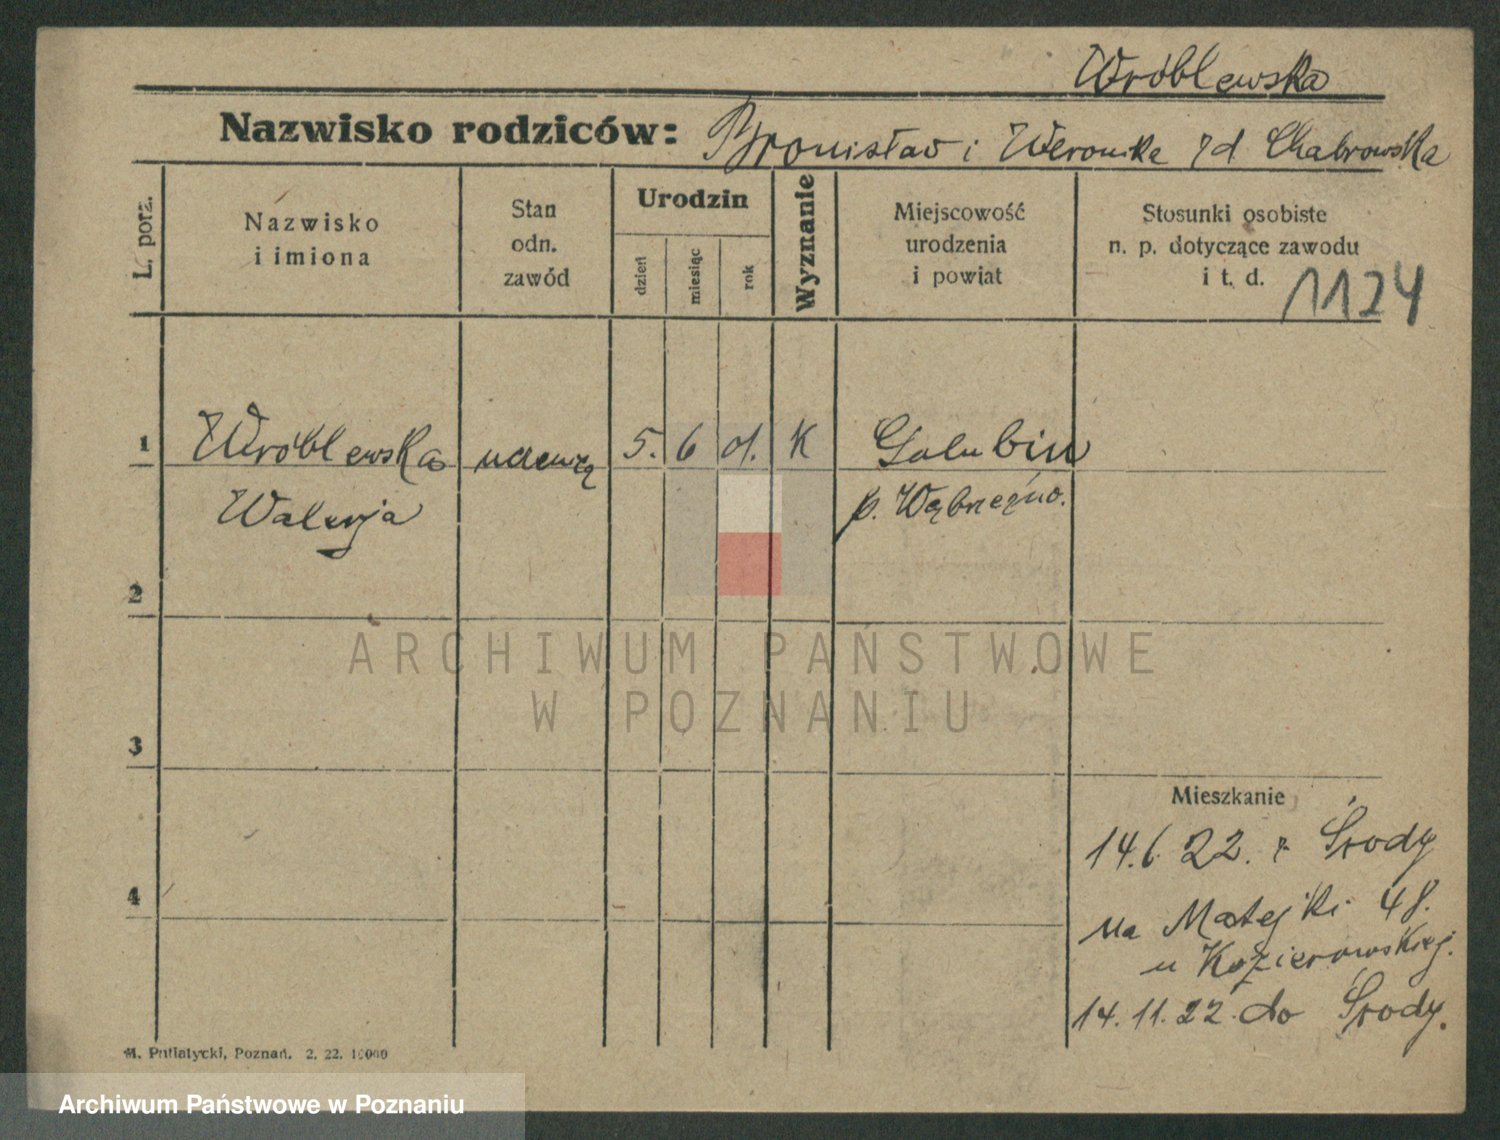 Wróblewska
Nazwisko rodziców: Bronisław i Weronika zd Chabrowska
L. porz.
Nazwisko
i imiona
Stan
odn.
zawód
Urodzin
dzień
miesiąc
rok
Wyznanie
Miejscowość
urodzenia
i powiat
Stosunki osobiste
n. p. dotyczące zawodu
i t. d.
1124
1 Wróblewska 5. 6 01. K Golubin
Walerja p. Wąbrzeźno.
2
3
4
Mieszkanie
14.6. 22. z Środy
na Matejki 48.
u Kozierowskiej.
14. 11. 22. do Środy.
M. Putiatycki, Poznań. 2. 22. 10000
ARCHIWUM PAŃSTWOWE
W POZNANIU
Archiwum Państwowe w Poznaniu